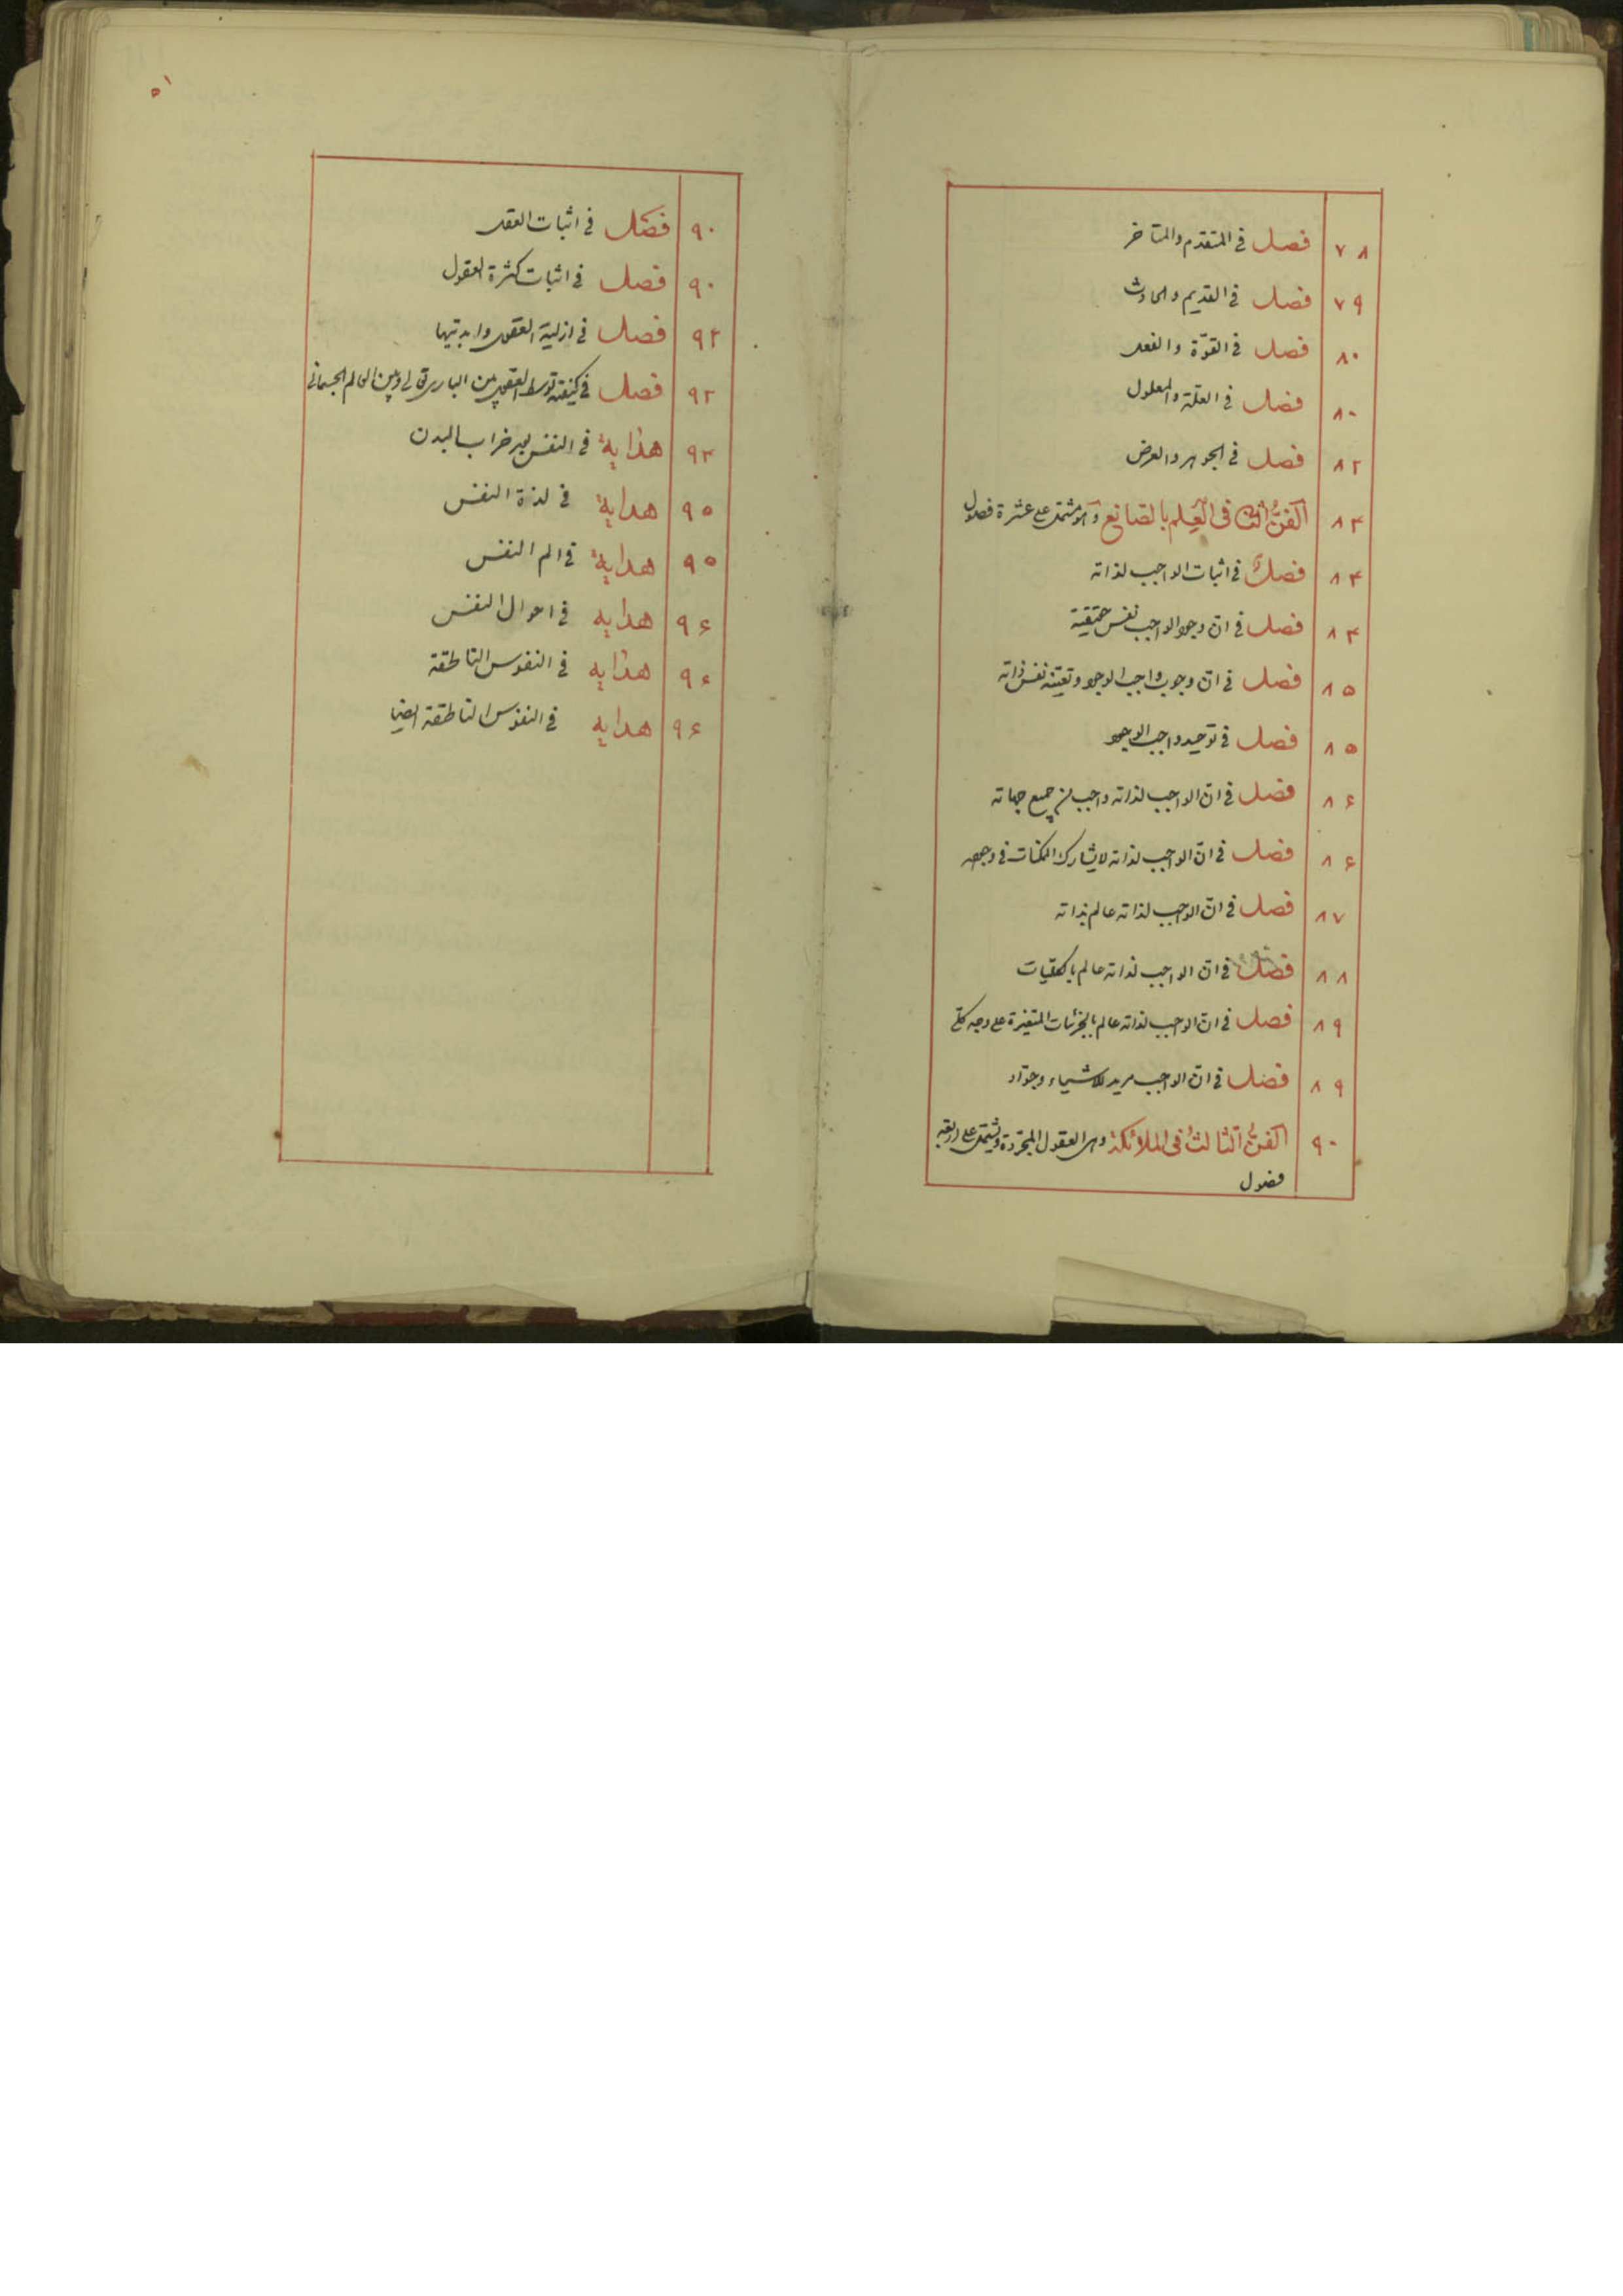 ٧٨ فصل في المتقدم والمتأخر
٧٩ فصل في القديم والحادث
٨٠ فصل في القوّة والفعل
٨٠ فصل في العلة والمعلول
٨٢ فصل في الجوهر والعرض
٨٣ الفنّ الثانى فى العلم بالصانع وهو مشتمل على عشرة فصول
٨٣ فصل في اثبات الواجب لذاته
٨٤ فصل في انّ وجود الواجب نفس حقيقته
٨٥ فصل في انّ وجوب واجب الوجود وتعيّنه نفس ذاته
٨٥ فصل في توحيد واجب الوجود
٨۶ فصل في انّ الواجب لذاته واجب من جميع جهاته
٨۶ فصل في انّ الواجب لذاته لا يشارك الممكنات في وجوده
٨٧ فصل في انّ الواجب لذاته عالم بذاته
٨٨ فصل في انّ الواجب لذاته عالم بالكليات
٨٩ فصل في انّ الواجب لذاته عالم بالجزئيات المتغيرة على وجه كلّي
٨٩ فصل في انّ الواجب مريد للاشياء وجوّاد
٩٠ الفنّ الثالث فى الملائكة وهى العقول المجرّدة ويشتمل على اربعة
فصول
٥١
٩٠ فصل في اثبات العقل
٩٠ فصل في اثبات كثرة العقول
٩٢ فصل في ازلية العقول وابديتها
٩٢ فصل في كيفية توسط العقول بين البارى تعالى وبين العالم الجسمانى
٩٣ هداية في النفس بعد خراب البدن
٩٥ هداية في لذة النفس
٩٥ هداية في الم النفس
٩۶ هداية في احوال النفس
٩۶ هداية في النفوس الناطقة
٩۶ هداية في النفوس الناطقة ايضا